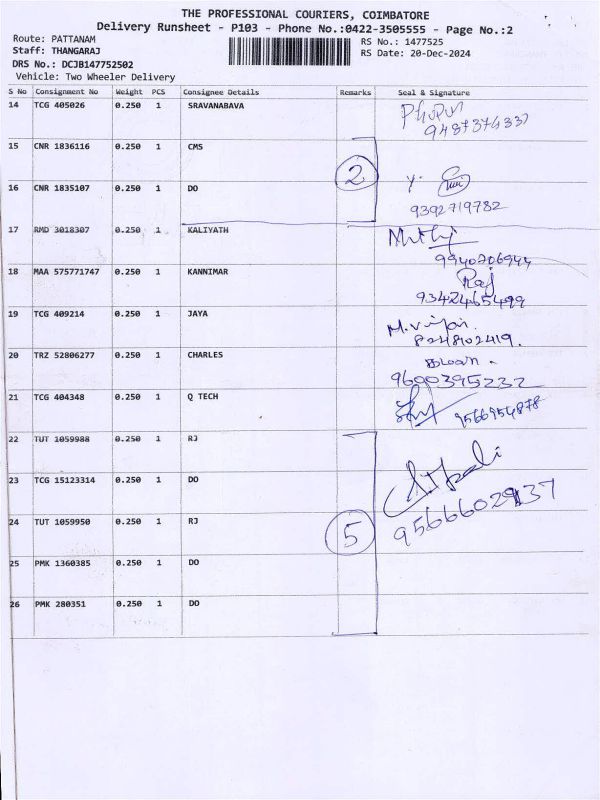 THE PROFESSIONAL COURIERS, COIMBATORE
Delivery Runsheet - P103 - Phone No.:0422-3505555 - Page No.:2
Route: PATTANAM
RS No.: 1477525
Staff: THANGARAJ
RS Date: 20-Dec-2024
DRS No.: DCJB147752502
Vehicle: Two Wheeler Delivery
S No Consignment No Weight PCS Consignee Details Remarks Seal & Signature
14 TCG 405026 0.250 1 SRAVANABAVA
9487374337
15 CNR 1836116 0.250 1 CMS
2
16 CNR 1835107 0.250 1 DO
9392719782
17 RMD 3018307 0.250 1 KALIYATH
9940706944
18 MAA 575771747 0.250 1 KANNIMAR Raj
9342465499
19 TCG 409214 0.250 1 JAYA
8248102419.
20 TRZ 52806277 0.250 1 CHARLES
9600395232
21 TCG 404348 0.250 1 Q TECH 9566954878
22 TUT 1059988 0.250 1 RJ
23 TCG 15123314 0.250 1 DO
24 TUT 1059950 0.250 1 RJ
5
25 PMK 1360385 0.250 1 DO
26 PMK 280351 0.250 1 DO